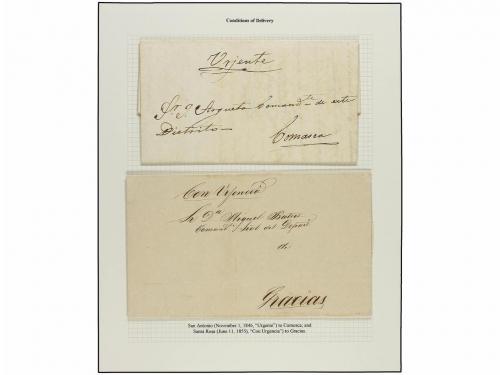 Conditions of Delivery
Urjente
Sr. Dn. Argueta Comandte. de este
Distrito
Comasca
Con Urjencia
Sr. Dn. Miguel Batres
Comand. Jral del Depart.
de
Gracias
San Antonio (November 1, 1846, "Urgente") to Comasca; and
Santa Rosa (June 11, 1855), "Con Urgencia") to Gracias.